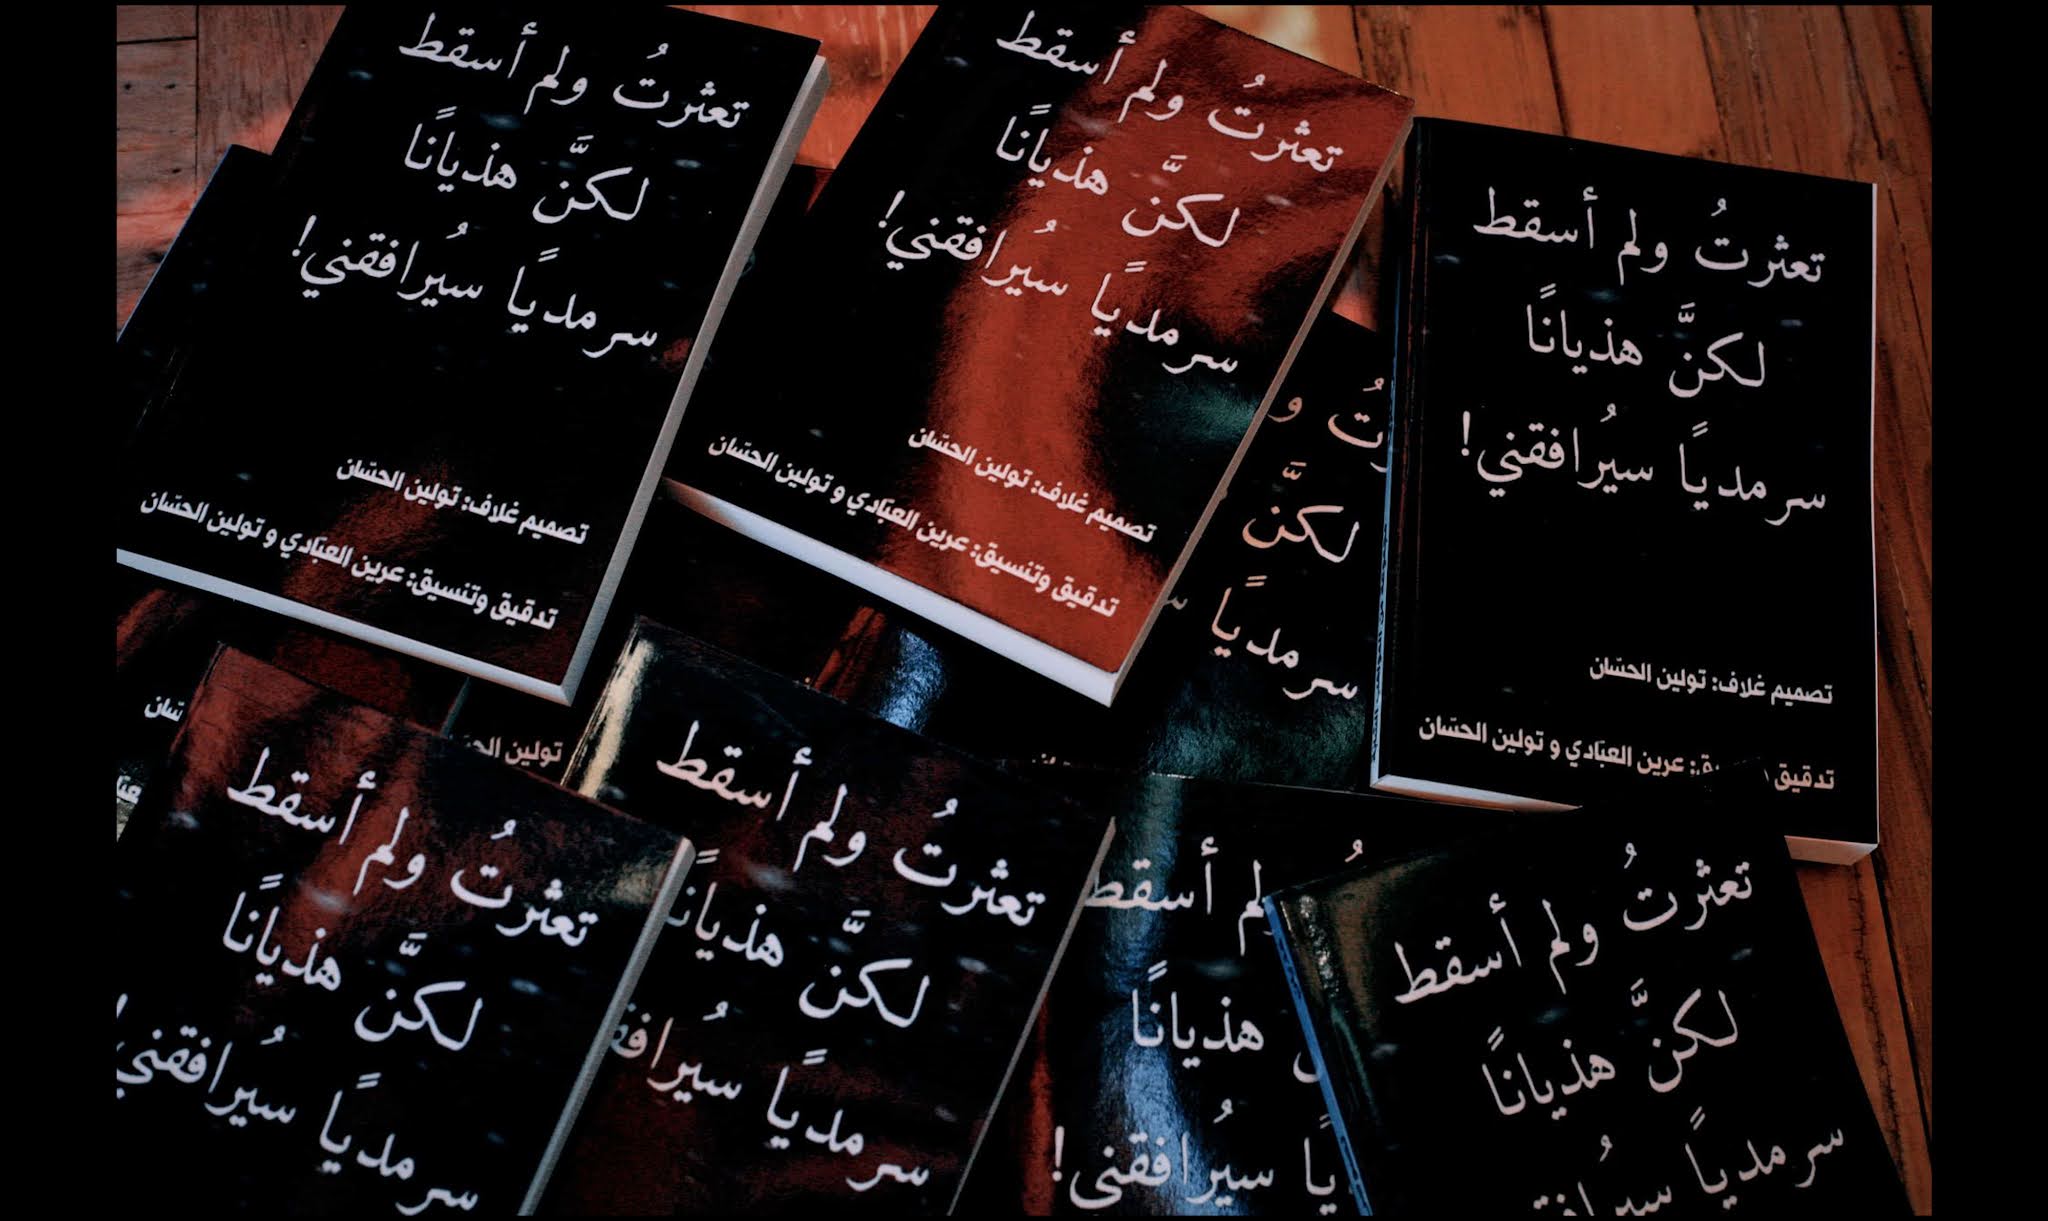 تعثرتُ ولم أسقط
لكنَّ هذيانًا
سرمديًا سيُرافقني!
تصميم غلاف: تولين الحسّان
تدقيق وتنسيق: عرين العبّادي و تولين الحسّان
تعثرتُ ولم أسقط
لكنَّ هذيانًا
سرمديًا سيُرافقني!
تصميم غلاف: تولين الحسّان
تدقيق وتنسيق: عرين العبّادي و تولين الحسّان
تعثرتُ ولم أسقط
لكنَّ هذيانًا
سرمديًا سيُرافقني!
تصميم غلاف: تولين الحسّان
تدقيق عرين العبّادي و تولين الحسّان
لكنَّ
سرمديًا
تولين
تعثرتُ ولم أسقط
لكنَّ هذيانًا
سرمديًا سيُرافقني!
تعثرتُ ولم أسقط
لكنَّ هذيانًا
سرمديًا
لم أسقط
هذيانًا
سيُرافقني!
تعثرتُ ولم أسقط
لكنَّ هذيانًا
سرمديًا